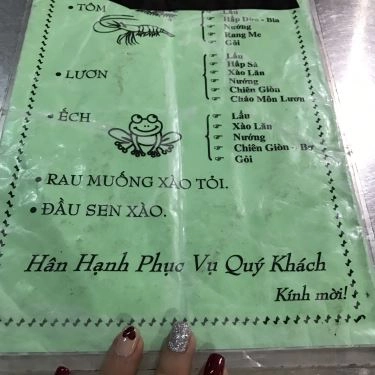 • TÔM
Lẩu
Hấp Dừa - Bia
Nướng
Rang Me
Gỏi
• LƯƠN
Lẩu
Hấp Sả
Xào Lăn
Nướng
Chiên Giòn
Cháo Môn Lươn
• ẾCH
Lẩu
Xào Lăn
Nướng
Chiên Giòn - Bơ
Gỏi
• RAU MUỐNG XÀO TỎI.
• ĐẦU SEN XÀO.
Hân Hạnh Phục Vụ Quý Khách
Kính mời!